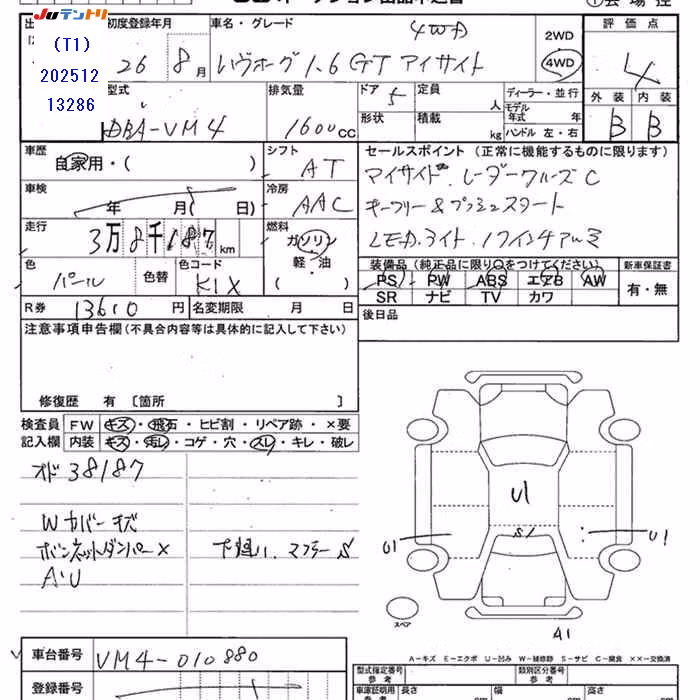 Juテントリ
(T1)
202512
13286
初度登録年月
26 8月
車名・グレード
4WD
レヴォーグ 1.6 GT アイサイト
2WD
4WD
評価点
4
外装 内装
B B
型式
DBA-VM4
排気量
1600cc
ドア 5
定員 人
形状
積載 kg
ディーラー・並行
モデル年式 年
ハンドル 左・右
車歴
自家用・( )
シフト
AT
セールスポイント (正常に機能するものに限ります)
アイサイト. レーダークルーズC
キーフリー&プッシュスタート
LEDライト. 17インチアルミ
車検
年 月( 日)
冷房
AAC
走行
3万8千187km
燃料
ガソリン
軽・油
( )
色
パール
色替
色コード
K1X
装備品 (純正品に限り○をつけてください)
PS PW ABS エアB AW
SR ナビ TV カワ
新車保証書
有・無
R券 13610円
名変期限 月 日
後日品
注意事項申告欄 (不具合内容等は具体的に記入して下さい)
修復歴 有 〔箇所 〕
検査員記入欄
FW キズ・飛石・ヒビ割・リペア跡・×要
内装 キズ・汚レ・コゲ・穴・スレ・キレ・破レ
オド 38187
Wカバーキズ
ボンネットダンパー×
A・U
下廻り. マフラーS
U1
S1
U1
U1
A1
スペア
A-キズ E-エクボ U-凹み W-補修跡 S-サビ C-腐食 ××-交換済
車台番号 VM4-010880
登録番号
型式指定番号 参考
類別区分番号 参考
車庫証明用 参考
長さ cm
幅 cm
高さ cm